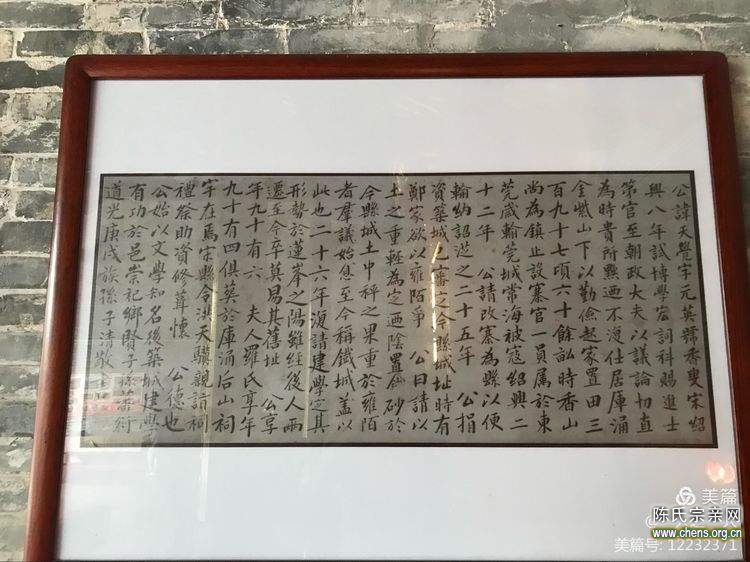 公諱天覺字元英號香叟宋紹
興八年試博學宏詞科賜進士
第官至朝政大夫以議論切直
為時貴所黜迺不復仕居庫涌
金紫山下以勤儉起家置田三
百九十七頃六十餘畝時香山
尚為鎮止設寨官一員属於東
莞歲輸莞城常海被寇紹興二
十二年公請改寨為縣以便
輸納詔從之二十五年公捐
資築城已審之今縣城址時有
鄭家欲以雍陌爭公曰請以
土之重輕為定迺陰置鐵砂於
今縣城土中秤之果重於雍陌
者羣議始息至今稱鐵城盖以
此也二十六年復請建學定其
形勢於蓮峯之陽雖經後人兩
遷至今卒莫易其舊址公享
年九十有六夫人羅氏享年
九十有四俱葬於庫涌后山祠
宇在焉宋縣令洪天驥親詣祠
禮祭助資修葺懷公德也
公始以文學知名後築城建學
有功於邑崇祀鄉賢子孫蕃衍
道光庚戌族孫子清敬
美篇
陈氏宗亲网
www.chens.org.cn
美篇号: 12232371